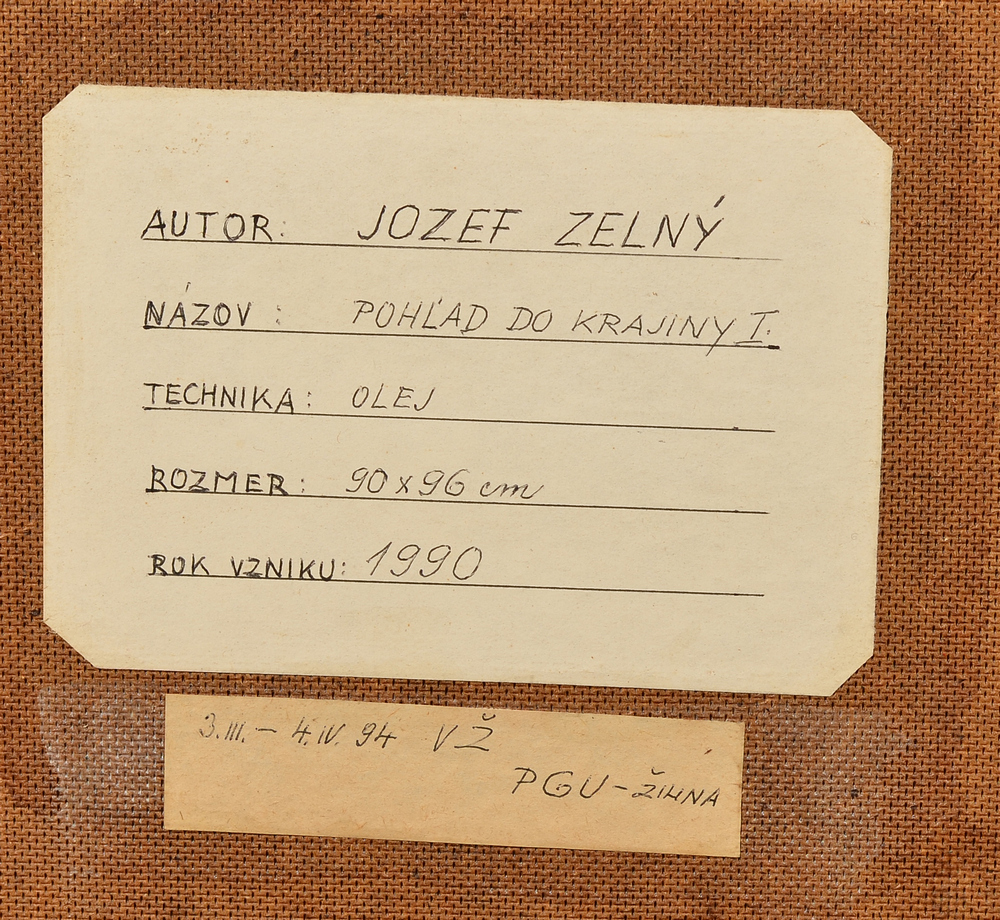 AUTOR: JOZEF ZELNÝ
NÁZOV : POHĽAD DO KRAJINY I.
TECHNIKA: OLEJ
ROZMER: 90 x 96 cm
ROK VZNIKU: 1990
3.III. – 4.IV. 94 V Ž
PGU – ŽILINA